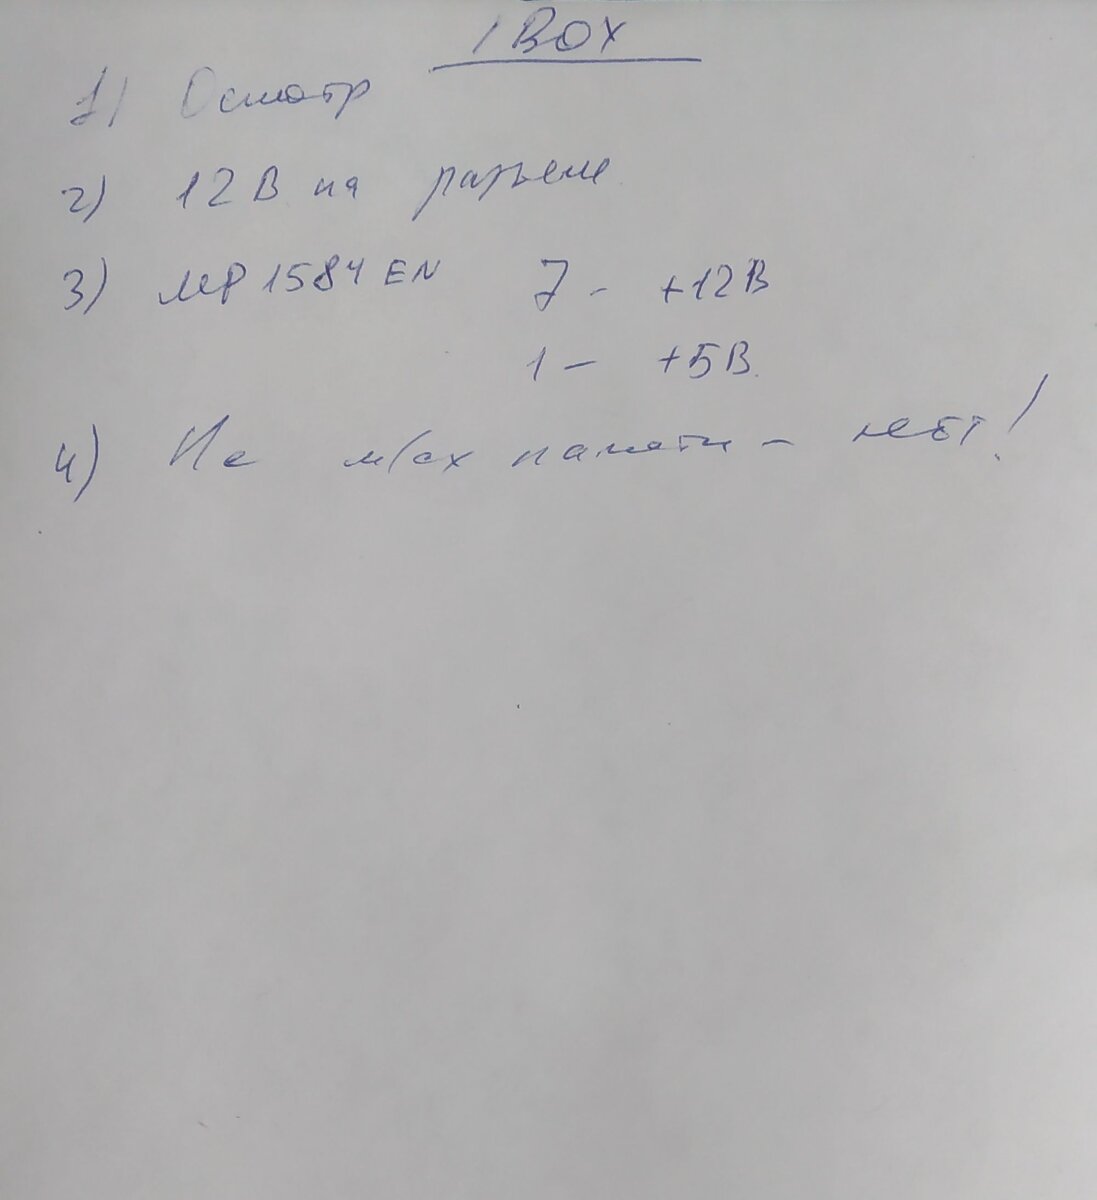 IBOX
1) Осмотр
2) 12В на разъеме
3) MP1584EN 7 - +12В
1 - +5В.
4) На м/сх памяти - нет!